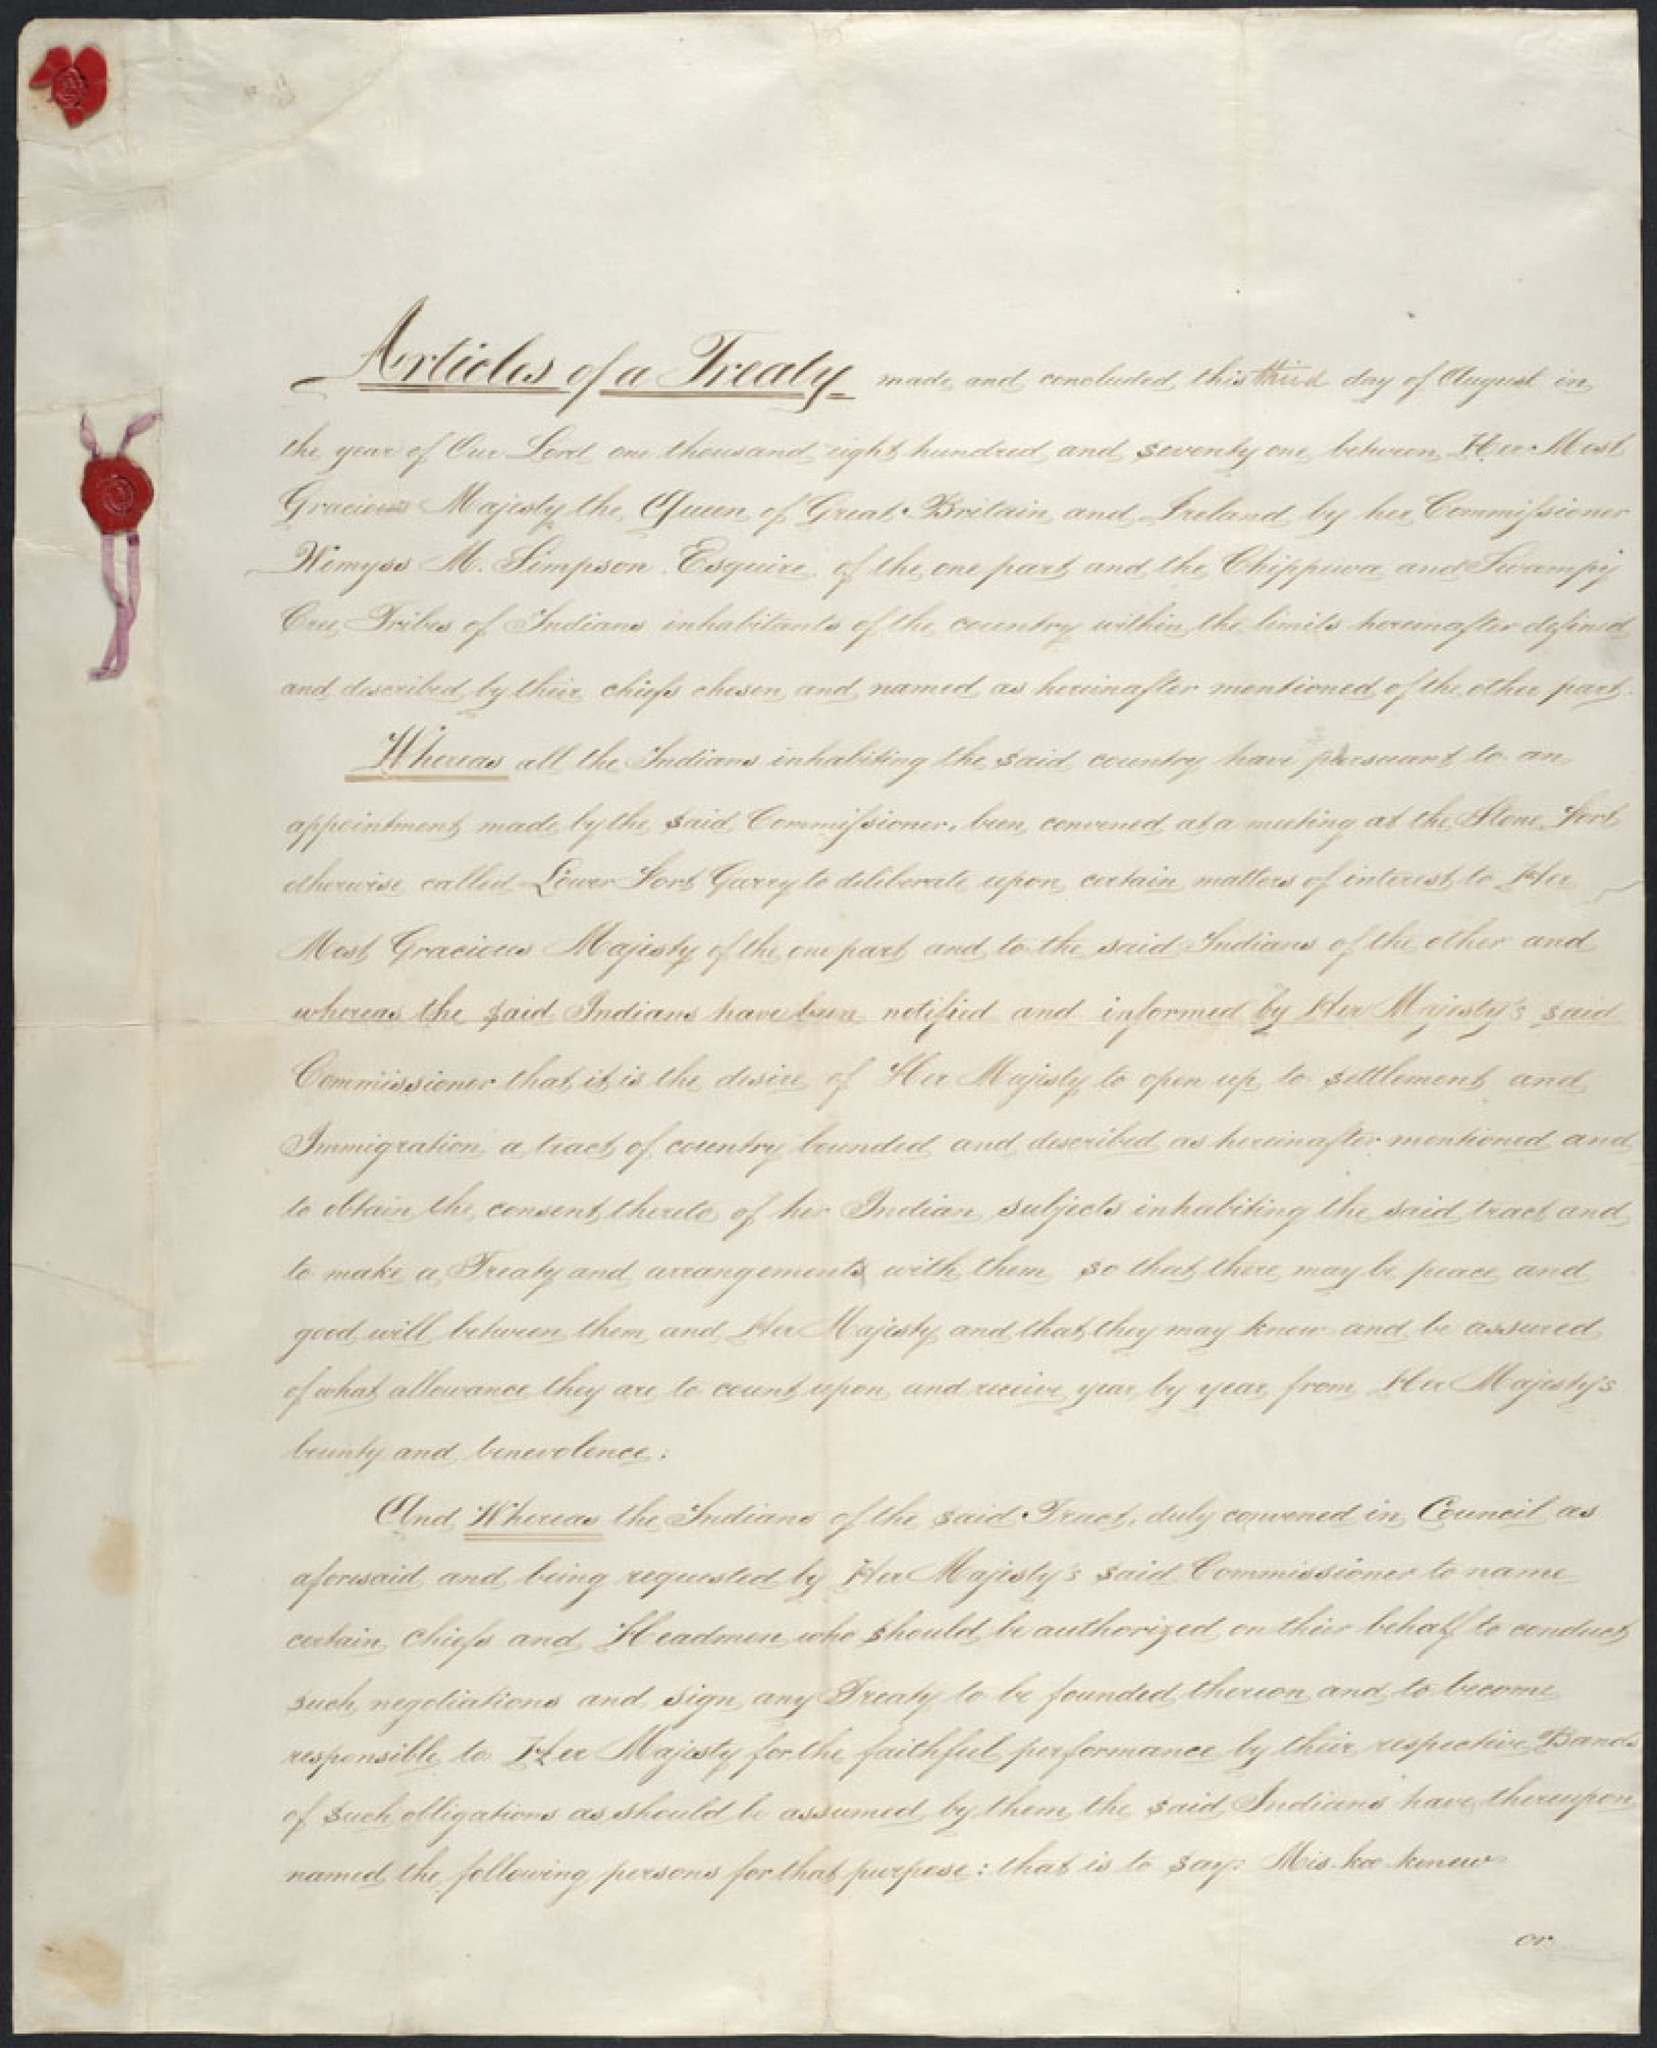 Articles of a Treaty made and concluded this third day of August in
the year of Our Lord one thousand eight hundred and seventy one between Her Most
Gracious Majesty the Queen of Great Britain and Ireland by her Commissioner
Wemyss M. Simpson Esquire of the one part and the Chippewa and Swampy
Cree Tribes of Indians inhabitants of the country within the limits hereinafter defined
and described by their chiefs chosen and named as hereinafter mentioned of the other part.
Whereas all the Indians inhabiting the said country have pursuant to an
appointment made by the said Commissioner, been convened at a meeting at the Stone Fort
otherwise called Lower Fort Garry to deliberate upon certain matters of interest to Her
Most Gracious Majesty of the one part and to the said Indians of the other and
whereas the said Indians have been notified and informed by Her Majesty's said
Commissioner that it is the desire of Her Majesty to open up to settlement and
Immigration a tract of country bounded and described as hereinafter mentioned and
to obtain the consent thereto of her Indian subjects inhabiting the said tract and
to make a Treaty and arrangements with them so that there may be peace and
good will between them and Her Majesty and that they may know and be assured
of what allowance they are to count upon and receive year by year from Her Majesty's
bounty and benevolence.
And Whereas the Indians of the said Tract, duly convened in Council as
aforesaid and being requested by Her Majesty's said Commissioner to name
certain chiefs and Headmen who should be authorized on their behalf to conduct
such negotiations and sign any Treaty to be founded thereon and to become
responsible to Her Majesty for the faithful performance by their respective Bands
of such obligations as should be assumed by them the said Indians have thereupon
named the following persons for that purpose: that is to say: Mis-koo-kenew
or